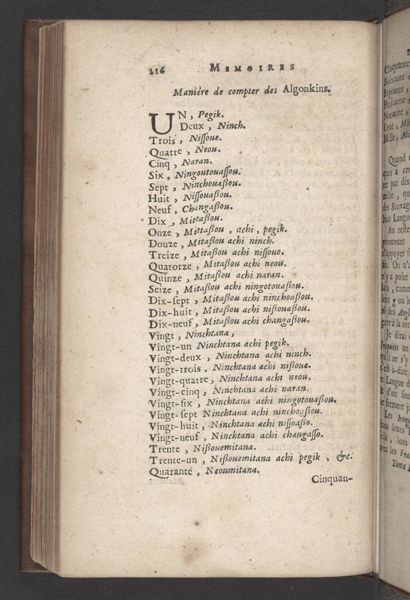 216 MEMOIRES
Manière de compter des Algonkins.
UN, Pegik.
Deux, Ninch.
Trois, Nissoue.
Quatre, Neou.
Cinq, Naran.
Six, Ningoutouassou.
Sept, Ninchouassou.
Huit, Nissouassou.
Neuf, Changassou.
Dix, Mittassou.
Onze, Mittassou, achi, pegik.
Douze, Mitassou achi ninch.
Treize, Mitassou achi nissoue.
Quatorze, Mitassou achi neou.
Quinze, Mitassou achi naran.
Seize, Mitassou achi ningotouassou.
Dix-sept, Mitassou achi ninchoassou.
Dix-huit, Mitassou achi nissouassou.
Dix-neuf, Mitassou achi changassou.
Vingt, Ninchtana,
Vingt-un Ninchtana achi pegik.
Vingt-deux, Ninchtana achi ninch.
Vingt-trois, Ninchtana achi nissoue.
Vingt-quatre, Ninchtana achi neou.
Vingt-cinq, Ninchtana achi naran.
Vingt-six, Ninchtana achi ningotouassou.
Vingt-sept Ninchtana achi ninchoassou.
Vingt-huit, Ninchtana achi nissoasso.
Vingt-neuf, Ninchtana achi changasso.
Trente, Nissouemitana.
Trente-un, Nissouemitana achi pegik, &c.
Quarante, Neoumitana.
Cinquan-